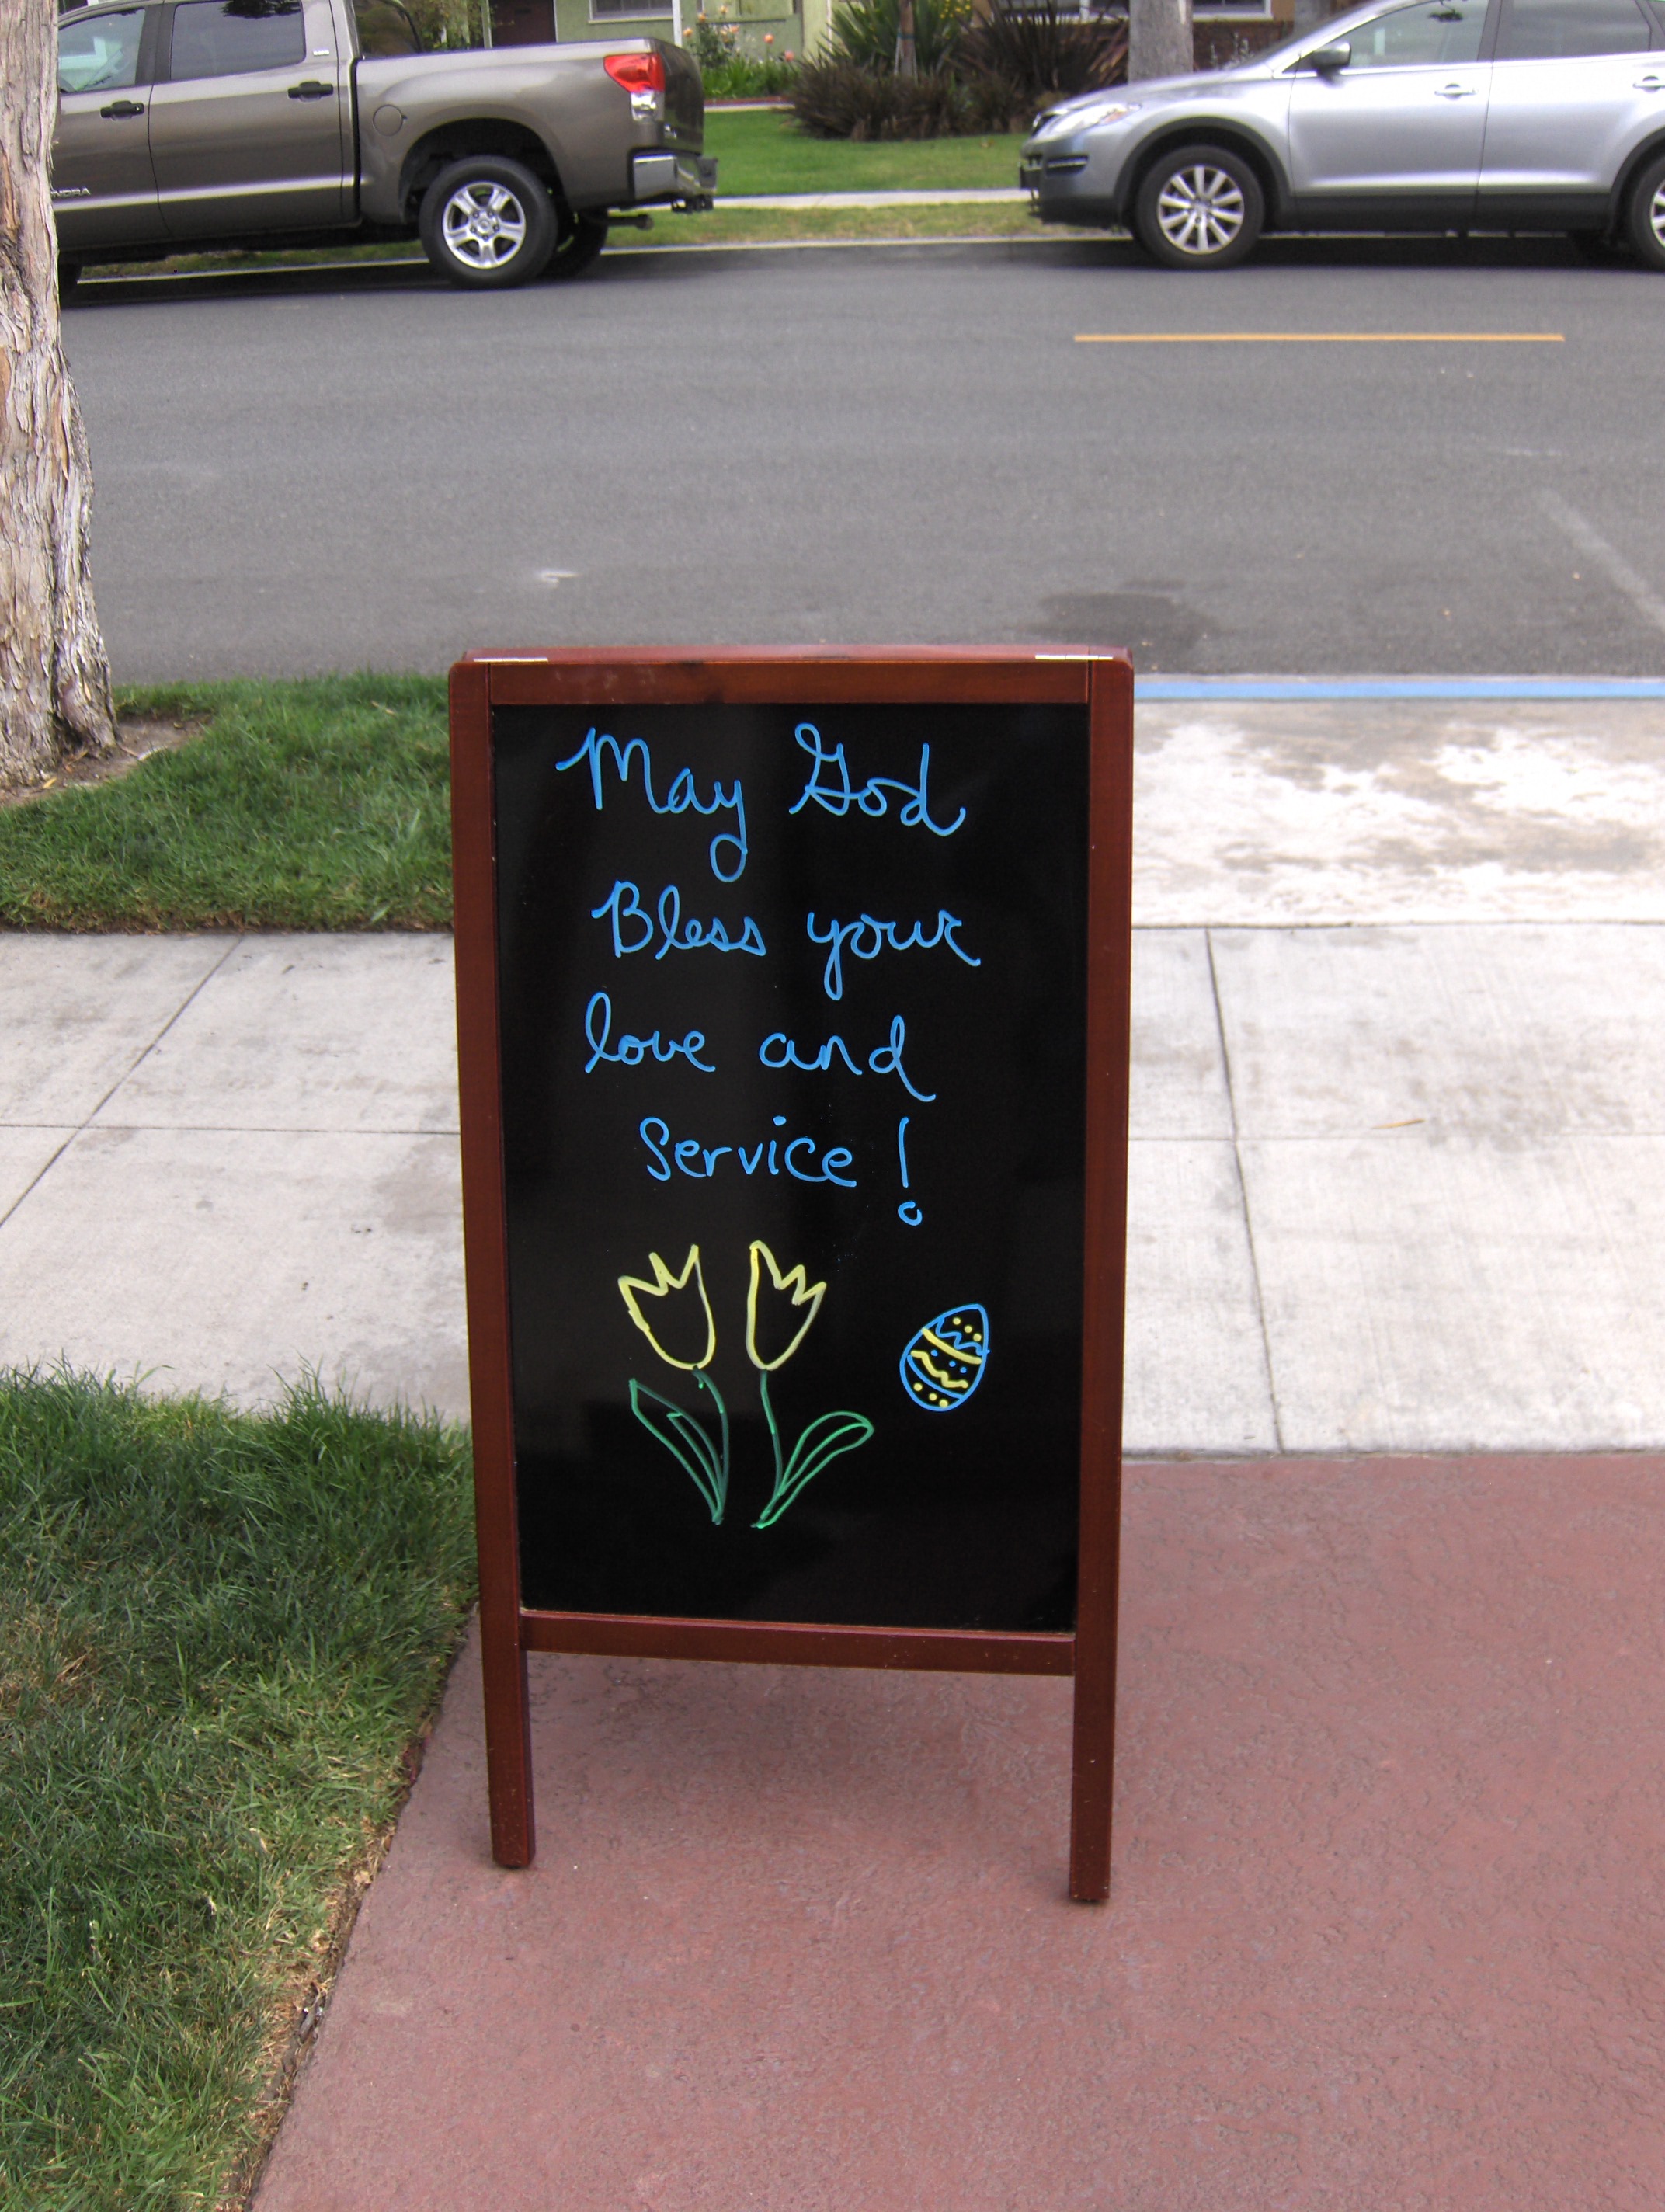 May God
Bless your
love and
service!